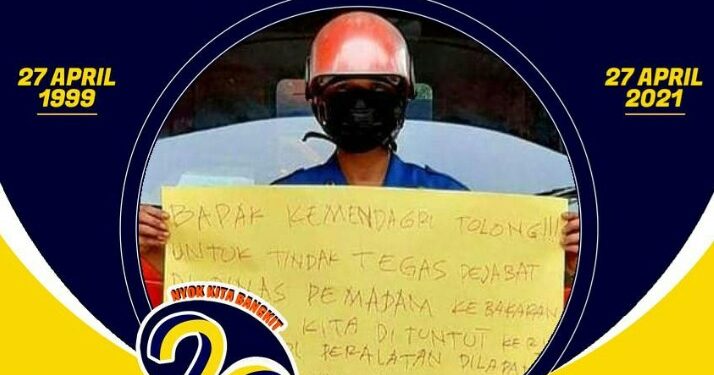 27 APRIL
1999
27 APRIL
2021
BAPAK KEMENDAGRI TOLONG!!!
UNTUK TINDAK TEGAS PEJABAT
DI DINAS PEMADAM KEBAKARAN
KITA DI TUNTUT
PERALATAN DILAPA
NYOK KITA BANGKIT